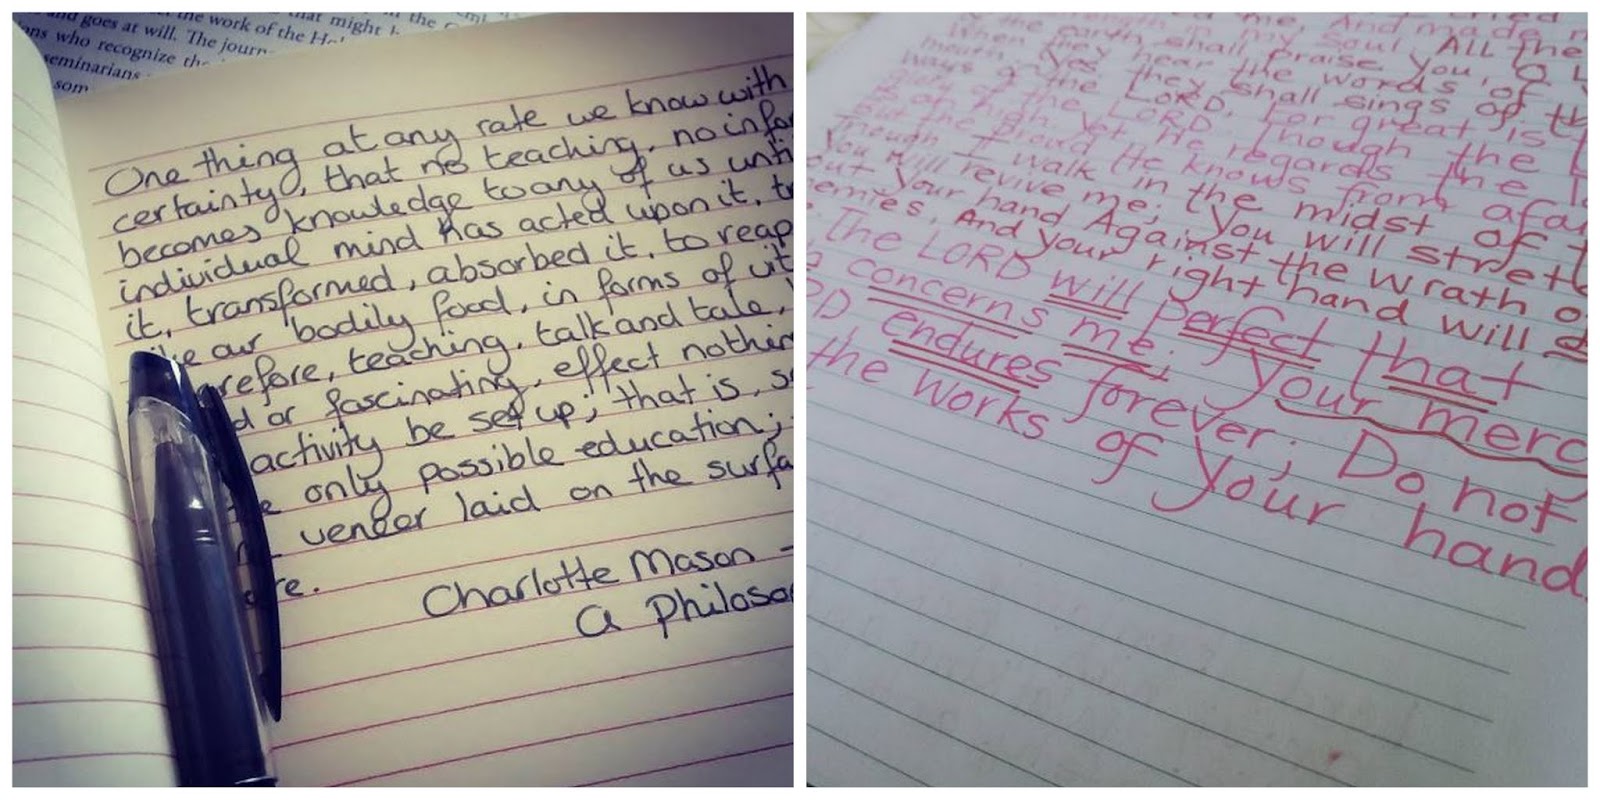 and goes at will. The journ
the work of the
that might
in the
ons who recognize the
seminarians
som
One thing at any rate we know with
certainty, that no teaching, no infor
becomes knowledge to any of us unti
individual mind has acted upon it, tr
it, transformed, absorbed it, to reap
our bodily food, in forms of vit
refore, teaching, talk and tale,
d or fascinating, effect nothin
activity be set up; that is, s
only possible education;
veneer laid on the surfa
re.
Charlotte Mason -
A Philoso
me, And made
in my soul All the
the earth shall Praise You, O L
When they hear the words of
mouth, Yes they shall sings of th
ways of the LORD, For great is t
glory of the LORD. Though the L
is on high, Yet He regards the l
but the proud He knows from afa
Though I walk in the midst of t
You will revive me; You will stretc
out Your hand Against the wrath o
emies, And Your right hand will
The LORD will perfect that
concerns me; Your merc
endures forever; Do not
the works of Your hand